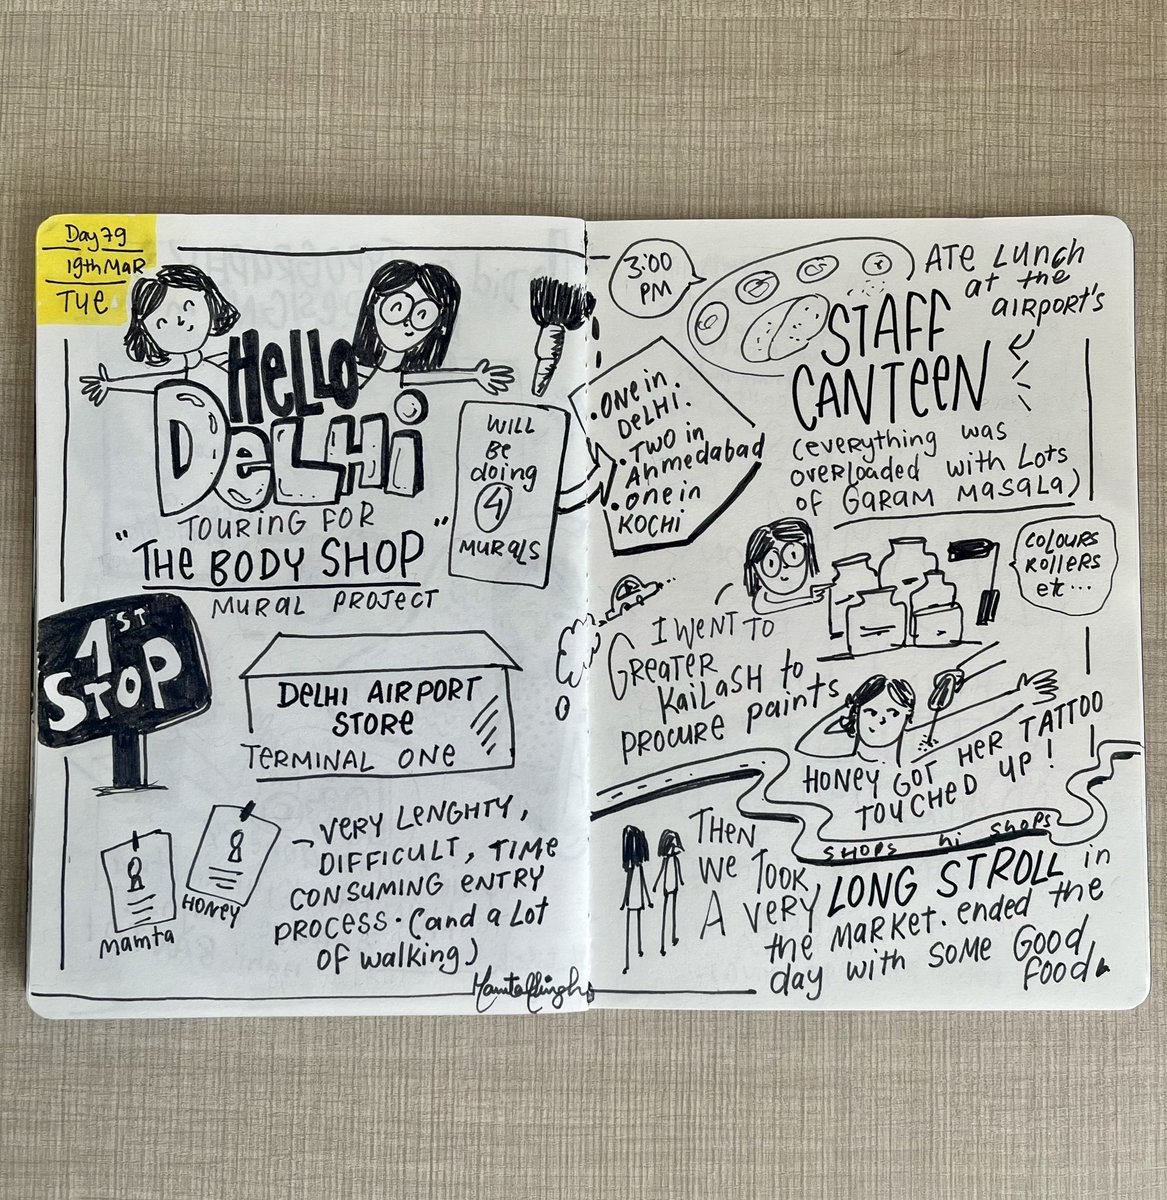 Day 79
19th MAR
TUE
HELLO
DELHi
TOURING FOR
"THE BODY SHOP"
MURAL PROJECT
WILL
BE
doing
4
MURALS
1ST
STOP
DELHI AIRPORT
STORE
TERMINAL ONE
MAMTA
HONEY
- VERY LENGHTY,
DIFFICULT, TIME
CONSUMING ENTRY
PROCESS. (and a LOT
OF walking)
MamtaSingh
3:00
PM
ATE LUNCH
at the
AIRPORT'S
STAFF
CANTEEN
(EVERYTHING WAS
OVERLOADED WITH LOTS
OF GARAM MASALA)
• ONE in
DELHI.
• TWO in
Ahmedabad
• one in
KOCHI
COLOURS
ROLLERS
etc...
I WENT TO
GREATER
KAILASH to
PROCURE paints
HONEY GOT HER TATTOO
TOUCHED UP!
SHOPS hi SHOPS
THEN
WE TOOK
A VERY LONG STROLL in
the MARKET. ended the
day with some GOOD
food